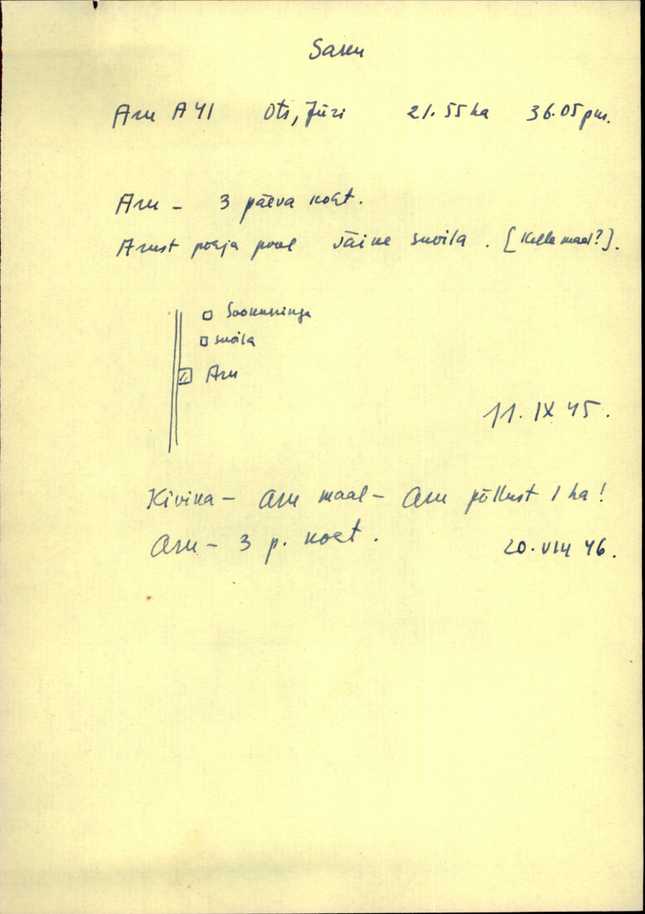 Saru
Aru A41 Ots, Jüri 21.55 ha 36.05 pm.
Aru – 3 päeva koht.
Arust põhja pool väike suvila. [Kelle maal?].
suvila
Aru
11. IX 45.
Kivika – Aru maal – Aru põllust 1 ha!
Aru – 3 p. koht.
20. VIII 46.